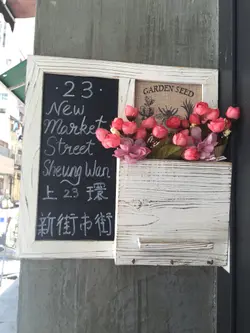 · 23 ·
New
Market
Street
Sheung Wan
上 23 環
新街市街
GARDEN SEED